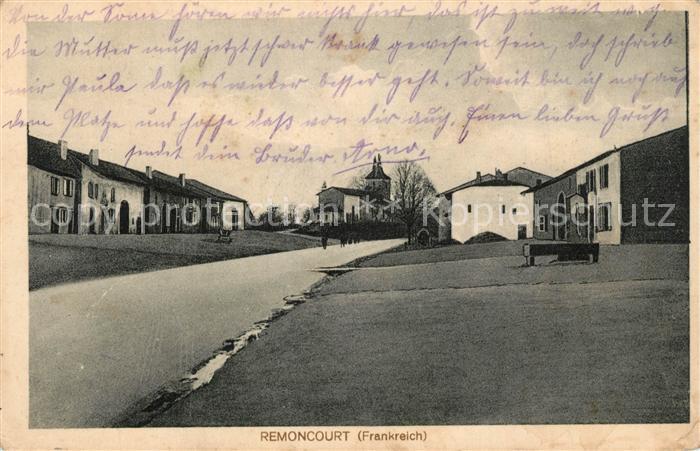 Von der Somme hören wir nichts hier, das ist zu weit weg
die Mutter muß jetzt schwer krank gewesen sein, doch schrieb
mir Paula daß es wieder besser geht. Soweit bin ich noch auf
dem Platze und hoffe daß von dir auch. Einen lieben Gruß
sendet dein Bruder Arno.
© Kopierschutz
REMONCOURT (Frankreich)